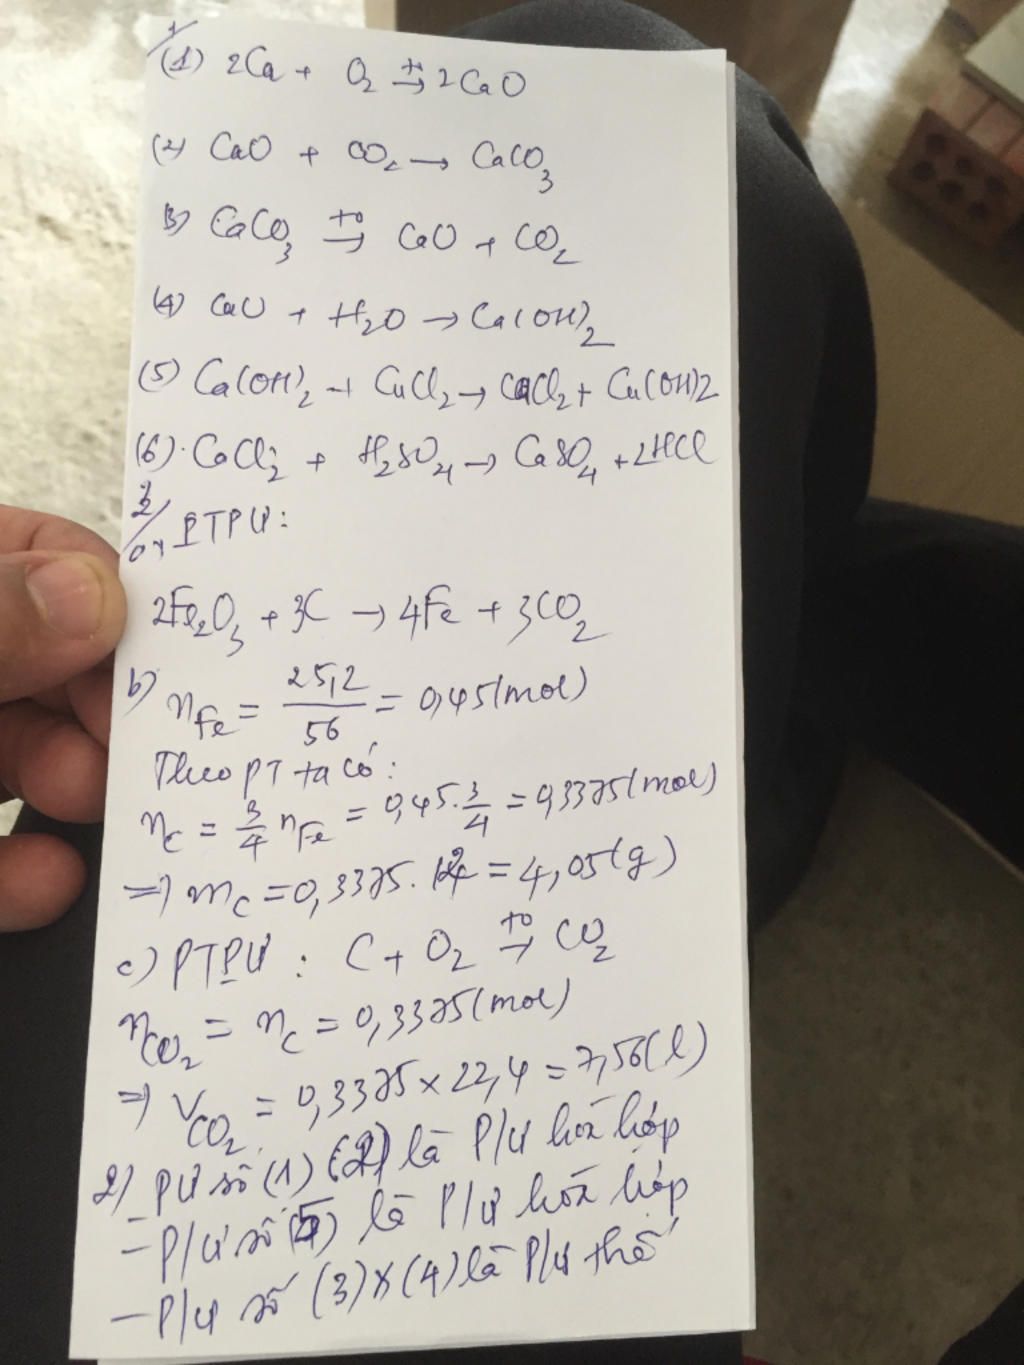 1/
(1) 2Ca + O2 t°→ 2CaO
(2) CaO + CO2 → CaCO3
3) CaCO3 t°→ CaO + CO2
(4) CaO + H2O → Ca(OH)2
(5) Ca(OH)2 + CuCl2 → CaCl2 + Cu(OH)2
(6) CaCl2 + H2SO4 → CaSO4 + 2HCl
3/
a, PTPƯ:
2Fe2O3 + 3C → 4Fe + 3CO2
b) nFe = 25,2/56 = 0,45 (mol)
Theo PT ta có:
nC = 3/4 nFe = 0,45 . 3/4 = 0,3375 (mol)
=> mC = 0,3375 . 12 = 4,05 (g)
c) PTPƯ : C + O2 t°→ CO2
nCO2 = nC = 0,3375 (mol)
=> VCO2 = 0,3375 x 22,4 = 7,56 (l)
2) - PƯ số (1) (2) là P/ư hoá hợp
- P/ư số là P/ư hoá hợp
- P/ư số (3) (4) là P/ư thế